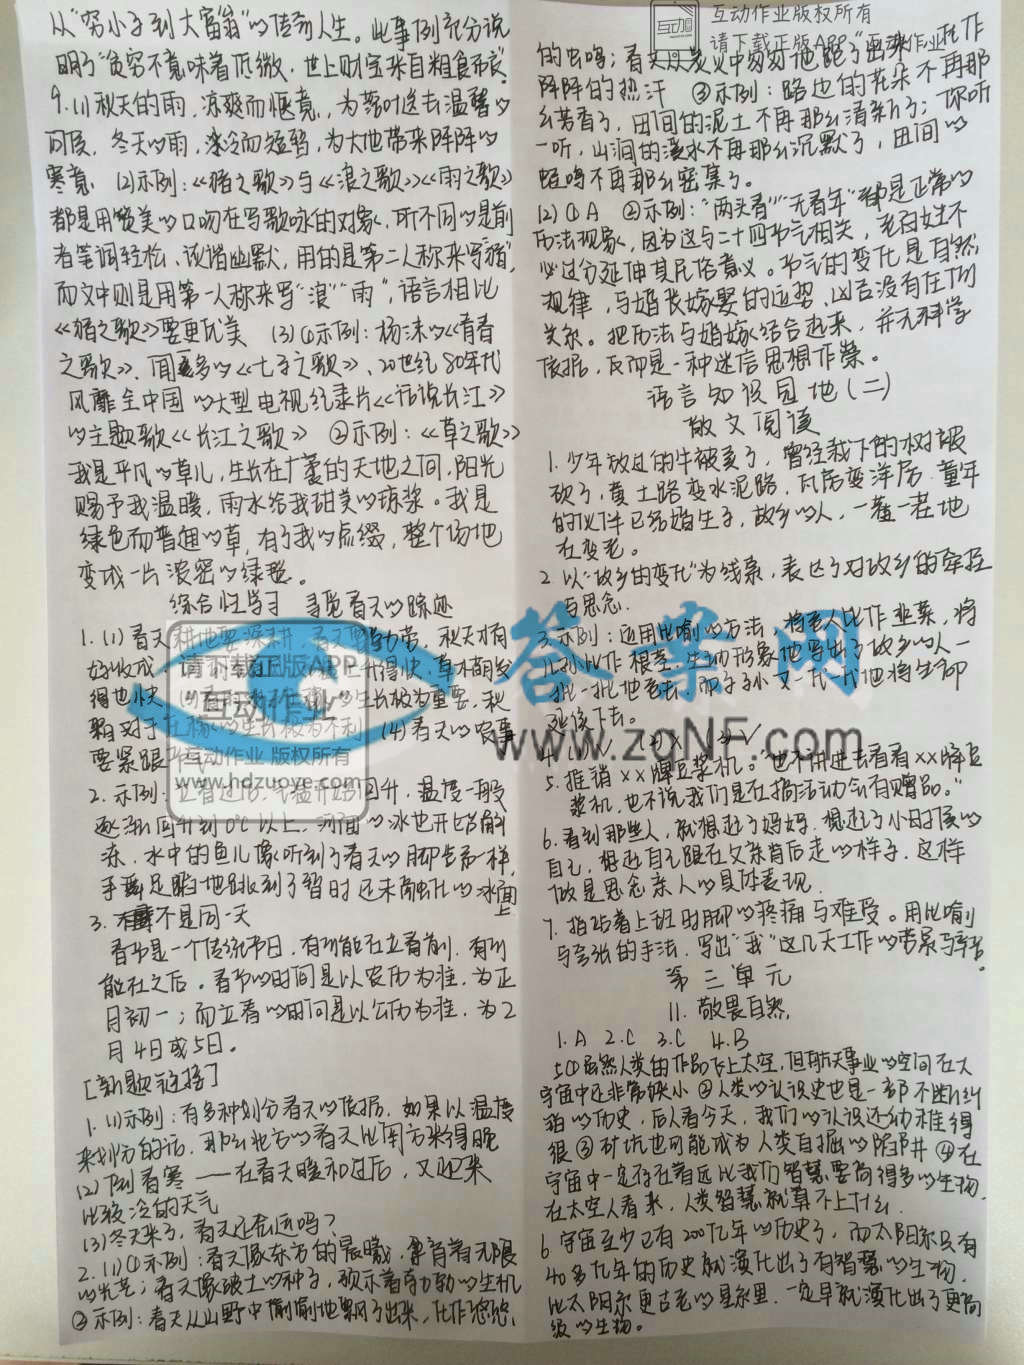 从“穷小子到大富翁”的传奇人生。此事例充分说
明了“贫穷不意味着低微，世上财宝来自粗食布衣”
9.(1)秋天的雨，凉爽而惬意，为落叶送去温馨的
问候，冬天的雨，冰冷而短暂，为大地带来阵阵的
寒意 (2)示例：《猪之歌》与《浪之歌》《雨之歌》
都是用赞美的口吻在写歌咏的对象，所不同的是前
者笔调轻松、诙谐幽默，用的是第二人称来写“猪”，
而文中则是用第一人称来写“浪”“雨”，语言相比
《猪之歌》要更优美 (3)①示例：杨沫的《青春
之歌》、闻一多的《七子之歌》、20世纪80年代
风靡全中国的大型电视纪录片《话说长江》
的主题歌《长江之歌》 ②示例：《草之歌》
我是平凡的草儿，生长在广袤的天地之间，阳光
赐予我温暖，雨水给我甜美的琼浆。我是
绿色而普通的草，有了我的点缀，整个场地
变成一片浓密的绿毯。
综合性学习 寻觅春天的踪迹
1.(1)春天耕地要深耕
好收成
得也快
(4)春天的农事
要紧跟
2.示例：立春过后，气温开始回升，温度一般
逐渐回升到0℃以上，河面的冰也开始解
冻，水中的鱼儿像听到了春天的脚步声一样，
手舞足蹈地跳到了暂时还未融化的冰面
上
3.不是同一天
春节是一个传统节日，有可能在立春前，有可
能在之后。春节的时间是以农历为准，为正
月初一；而立春的时间是以公历为准，为2
月4日或5日。
[新题链接]
1.(1)示例：有多种划分春天的依据，如果以温度
来划分的话，那么北方的春天比南方来得晚
(2)倒春寒——在春天暖和过后，又迎来
比较冷的天气
(3)冬天来了，春天还会远吗？
2.(1)①示例：春天像东方的晨曦，孕育着无限
的光芒；春天像破土的种子，预示着勃勃的生机
②示例：春天从山野中悄悄地飘了出来，化作悠悠
互动作业版权所有
请下载正版APP“互动作业”
的虫鸣；春天从炭火中匆匆地跑了出来，化作
阵阵的热汗 ③示例：路边的花朵不再那
么芳香了，田间的泥土不再那么清亲了；你听
一听，山涧的溪水不再那么沉默了，田间的
蛙鸣不再那么密集了。
(2)①A ②示例：“两头春”“无春年”都是正常的
历法现象，因为这与二十四节气相关，老百姓不
必过分延伸其民俗意义。节气的变化是自然
规律，与婚丧嫁娶的运势、凶吉没有任何
关系。把历法与婚嫁结合起来，并无科学
依据，反而是一种迷信思想作祟。
语言知识园地(二)
散文阅读
1.少年放过的牛被卖了，曾经栽下的树被
砍了，黄土路变水泥路，瓦房变洋房，童年
的伙伴已结婚生子，故乡的人，一茬一茬地
在变老。
2.以“故乡的变化”为线索，表达了对故乡的牵挂
与思念.
3.示例：运用比喻的方法，将老人比作韭菜，将
儿孙比作根茎，生动形象地写出了故乡的人一
批一批地老去，而子子孙又一代一代地将生命
延续下去。
5.推销××牌豆浆机。“也不讲进去看看××牌豆
浆机，也不说我们是在搞活动会有赠品。”
6.看到那些人，就想起了妈妈，想起了小时候的
自己，想起自己跟在父亲背后走的样子，这样
做是思念亲人的具体表现.
7.指站着上班时脚的疼痛与难受。用比喻
与夸张的手法，写出“我”这几天工作的劳累与辛苦。
第三单元
11.敬畏自然
1.A 2.C 3.C 4.B
5.①虽然人类的作品飞上太空，但航天事业的空间在大
宇宙中还非常狭小 ②人类的认识史也是一部不断纠
错的历史，后人看今天，我们的认识还幼稚得
很 ③矿坑也可能成为人类自掘的陷阱 ④在
宇宙中一定存在着远比我们智慧要高得多的生物，
在太空人看来，人类智慧就算不上什么
6.宇宙至少已有200亿年的历史了，而太阳系只有
40多亿年的历史就演化出了有智慧的生物.
比太阳系更古老的星系里，一定早就演化出了更高
级的生物。
答案网
www.zqNF.com
请下载正版APP
互动作业
互动作业版权所有
www.hdzuoye.com